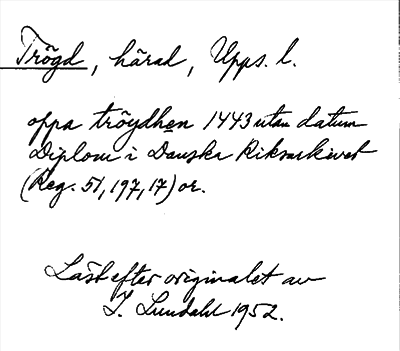 Trögd, härad, Upps. l.
oppa tröydhen 1443 utan datum
Diplom i Danska Riksarkivet
(Reg. 51, 197, 17) or.
Läst efter originalet av
I. Lundahl 1952.